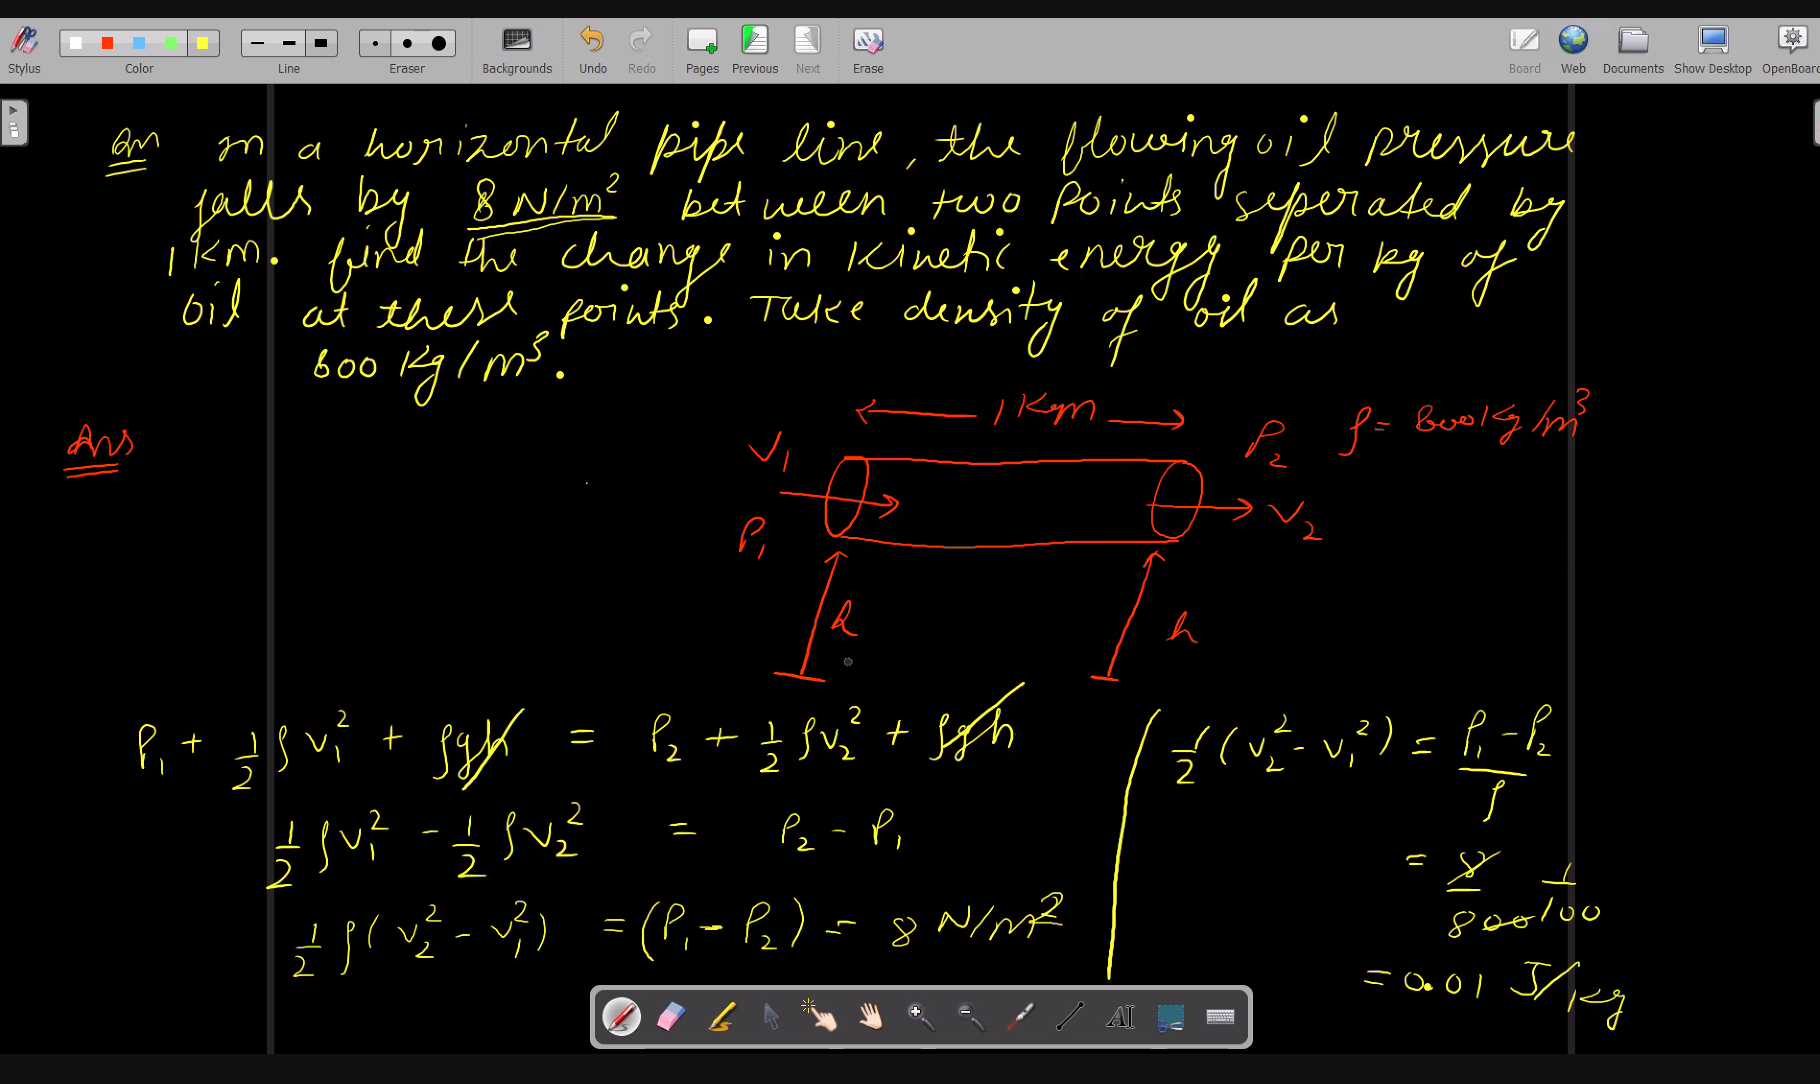 Stylus
Color
Line
Eraser
Backgrounds
Undo
Redo
Pages
Previous
Next
Erase
Board
Web
Documents
Show Desktop
OpenBoard
Qn In a horizontal pipe line, the flowing oil pressure
falls by 8 N/m² between two points seperated by
1 km. find the change in kinetic energy per kg of
oil at these points. Take density of oil as
800 Kg/m³.
Ans
1 Km
V₁
P₂
ρ = 800 kg/m³
P₁
V₂
h
h
P₁ + 1/2 ρ v₁² + ρgh = P₂ + 1/2 ρv₂² + ρgh
1/2 ρv₁² - 1/2 ρv₂² = P₂ - P₁
1/2 ρ(v₂² - v₁²) = (P₁ - P₂) = 8 N/m²
1/2 (v₂² - v₁²) = P₁ - P₂ / ρ
= 8/800 1/100
= 0.01 J/kg